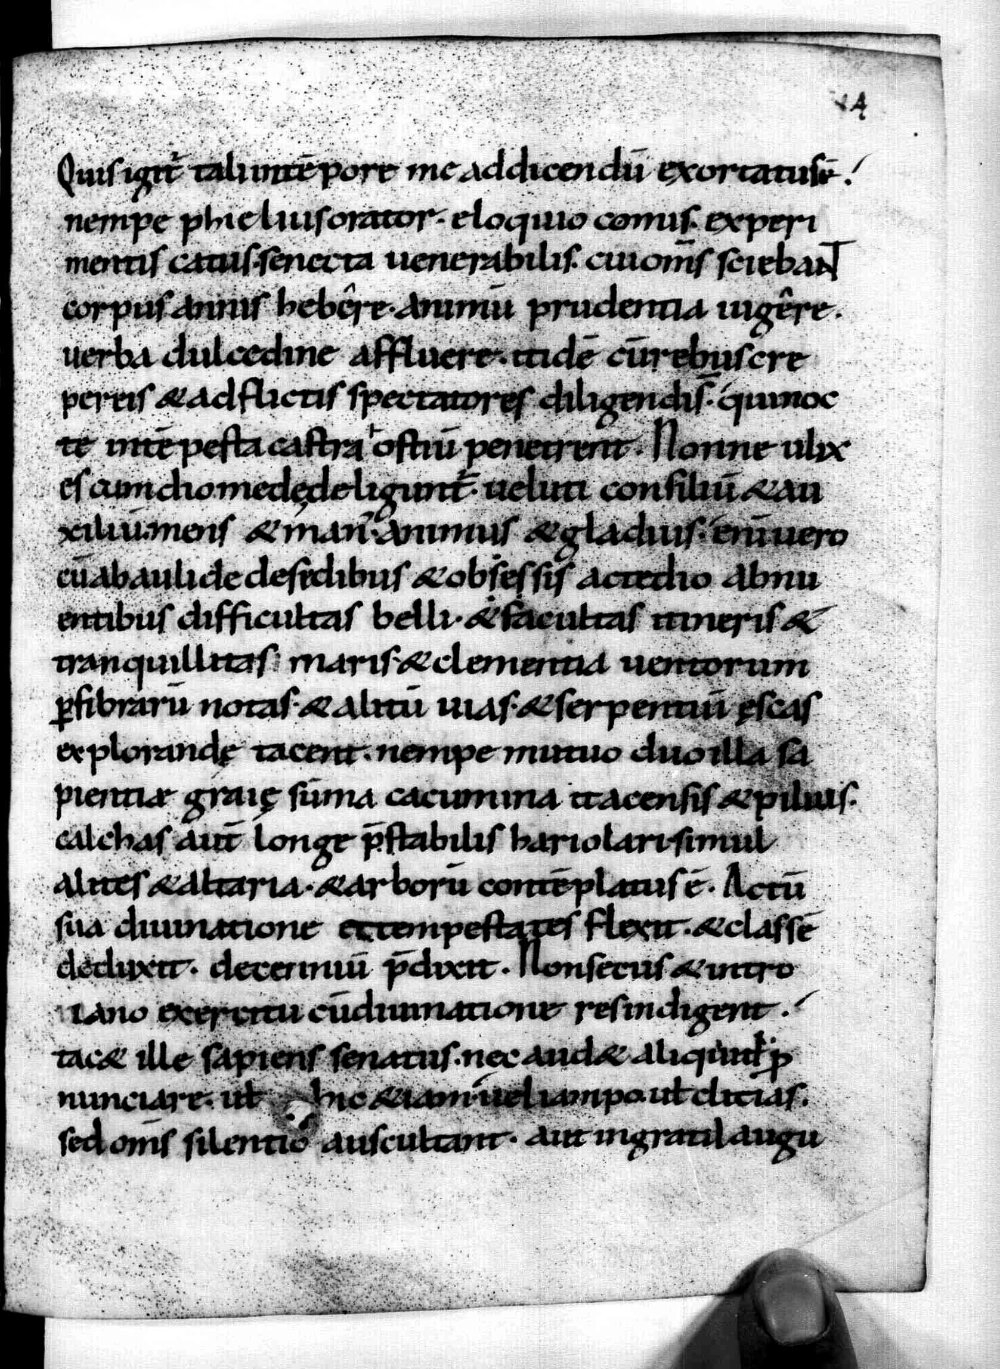 14
Quis igit̄ tali intēpore me addicendū exortatusē ?
nempe phieliusorator · eloquio comis · experi
mentis catus · senecta uenerabilis · cuiom̄s sciebaNT
corpus annis hebêre · animū prudentia uigêre ·
uerba dulcedine affluere · itidē cūrebuscre
pereis & adflictis spectatores diligendis̄ · quinoc
te intēpesta castra ostiū penetrent · Nonne ulix
es cum diomedędeligunt̄ · ueluti consiliū & au
xiliū · mens & man᾿ · animus & gladius · enīuero
cūabaulide desidibus & obsessis actedio abnu
entibus difficultas belli · & facultas itineris &
tranquillitas maris · & clementia uentorum
ꝑfibrarū notas · & alitū uias · & serpentiū ęscas
explorandę tacent · nempe mutuo duo illa sa
pientiæ graię sūma cacumina itacensis & pilius ·
calchas aut̄ longe p̄stabilis hariolari · simul
alites & altaria · & arborū contēplatus ē · Actū
sua diuinatione et tempestates flexit · & classē
deduxit · decenniū p̄dixit · Nonsecus & intro
iano exercitu cūdiuinatione resindigent ·
tac& ille sapiens senatus · nec aud& aliquid p̄
nunciare · ut hic & iam · ueliampo · ut clitias ·
sed om̄s silentio auscultant · aut ingratil augu